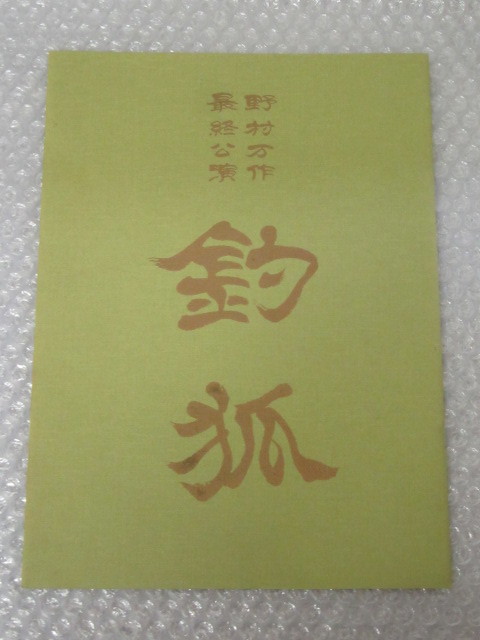 野村万作
最終公演
釣狐